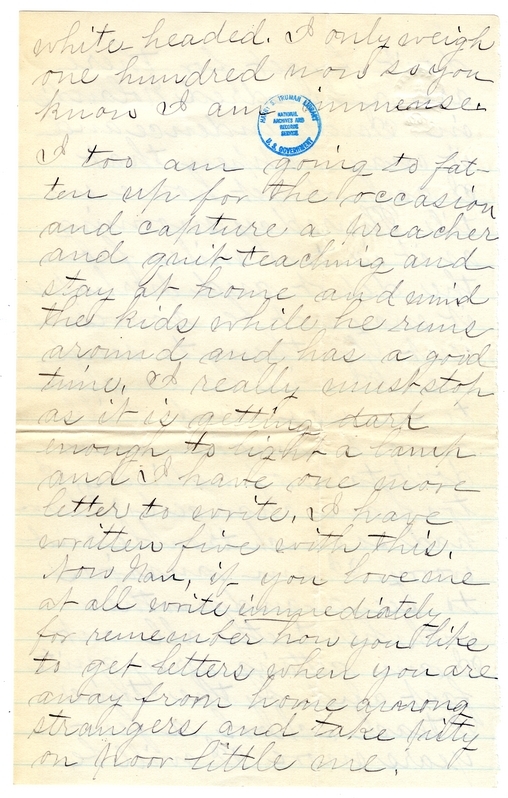 white headed. I only weigh
one hundred now so you
know I am immense.
HARRY S. TRUMAN LIBRARY
NATIONAL
ARCHIVES AND
RECORDS
SERVICE
U. S. GOVERNMENT
I too am going to fat-
ten up for the occasion
and capture a preacher
and quit teaching and
stay at home and mind
the kids while he runs
around and has a good
time. I really must stop
as it is getting dark
enough to light a lamp
and I have one more
letter to write. I have
written five with this.
Now Nan, if you love me
at all write immediately
for remember how you like
to get letters when you are
away from home among
strangers and take pity
on poor little me.